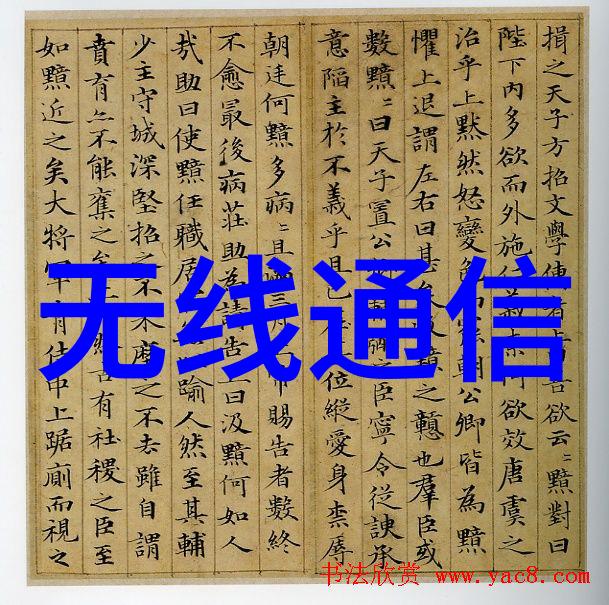 揖之天子方招文學者吾欲云〻黯對曰
陛下内多欲而外施仁義何欲效唐虞之
治乎上黙然怒變而朝公卿皆為黯
懼上退謂左右曰甚黯之戇也羣臣或
數黯〻曰天子置公卿弼之臣寧令從諛承
意陷主於不義乎且已位縱愛身柰辱
朝廷何黯多病〻且滿三月賜告者數終
不愈最後病莊助為請告上曰汲黯何如人
㢤助曰使黯任職居踰人然至其輔
少主守城深堅招之不来麾之不去雖自謂
賁育亦不能奪之矣然古有社稷之臣至
如黯近之矣大將軍青侍中上踞廁而視之
无线通信
书法欣赏 www.yac8.com